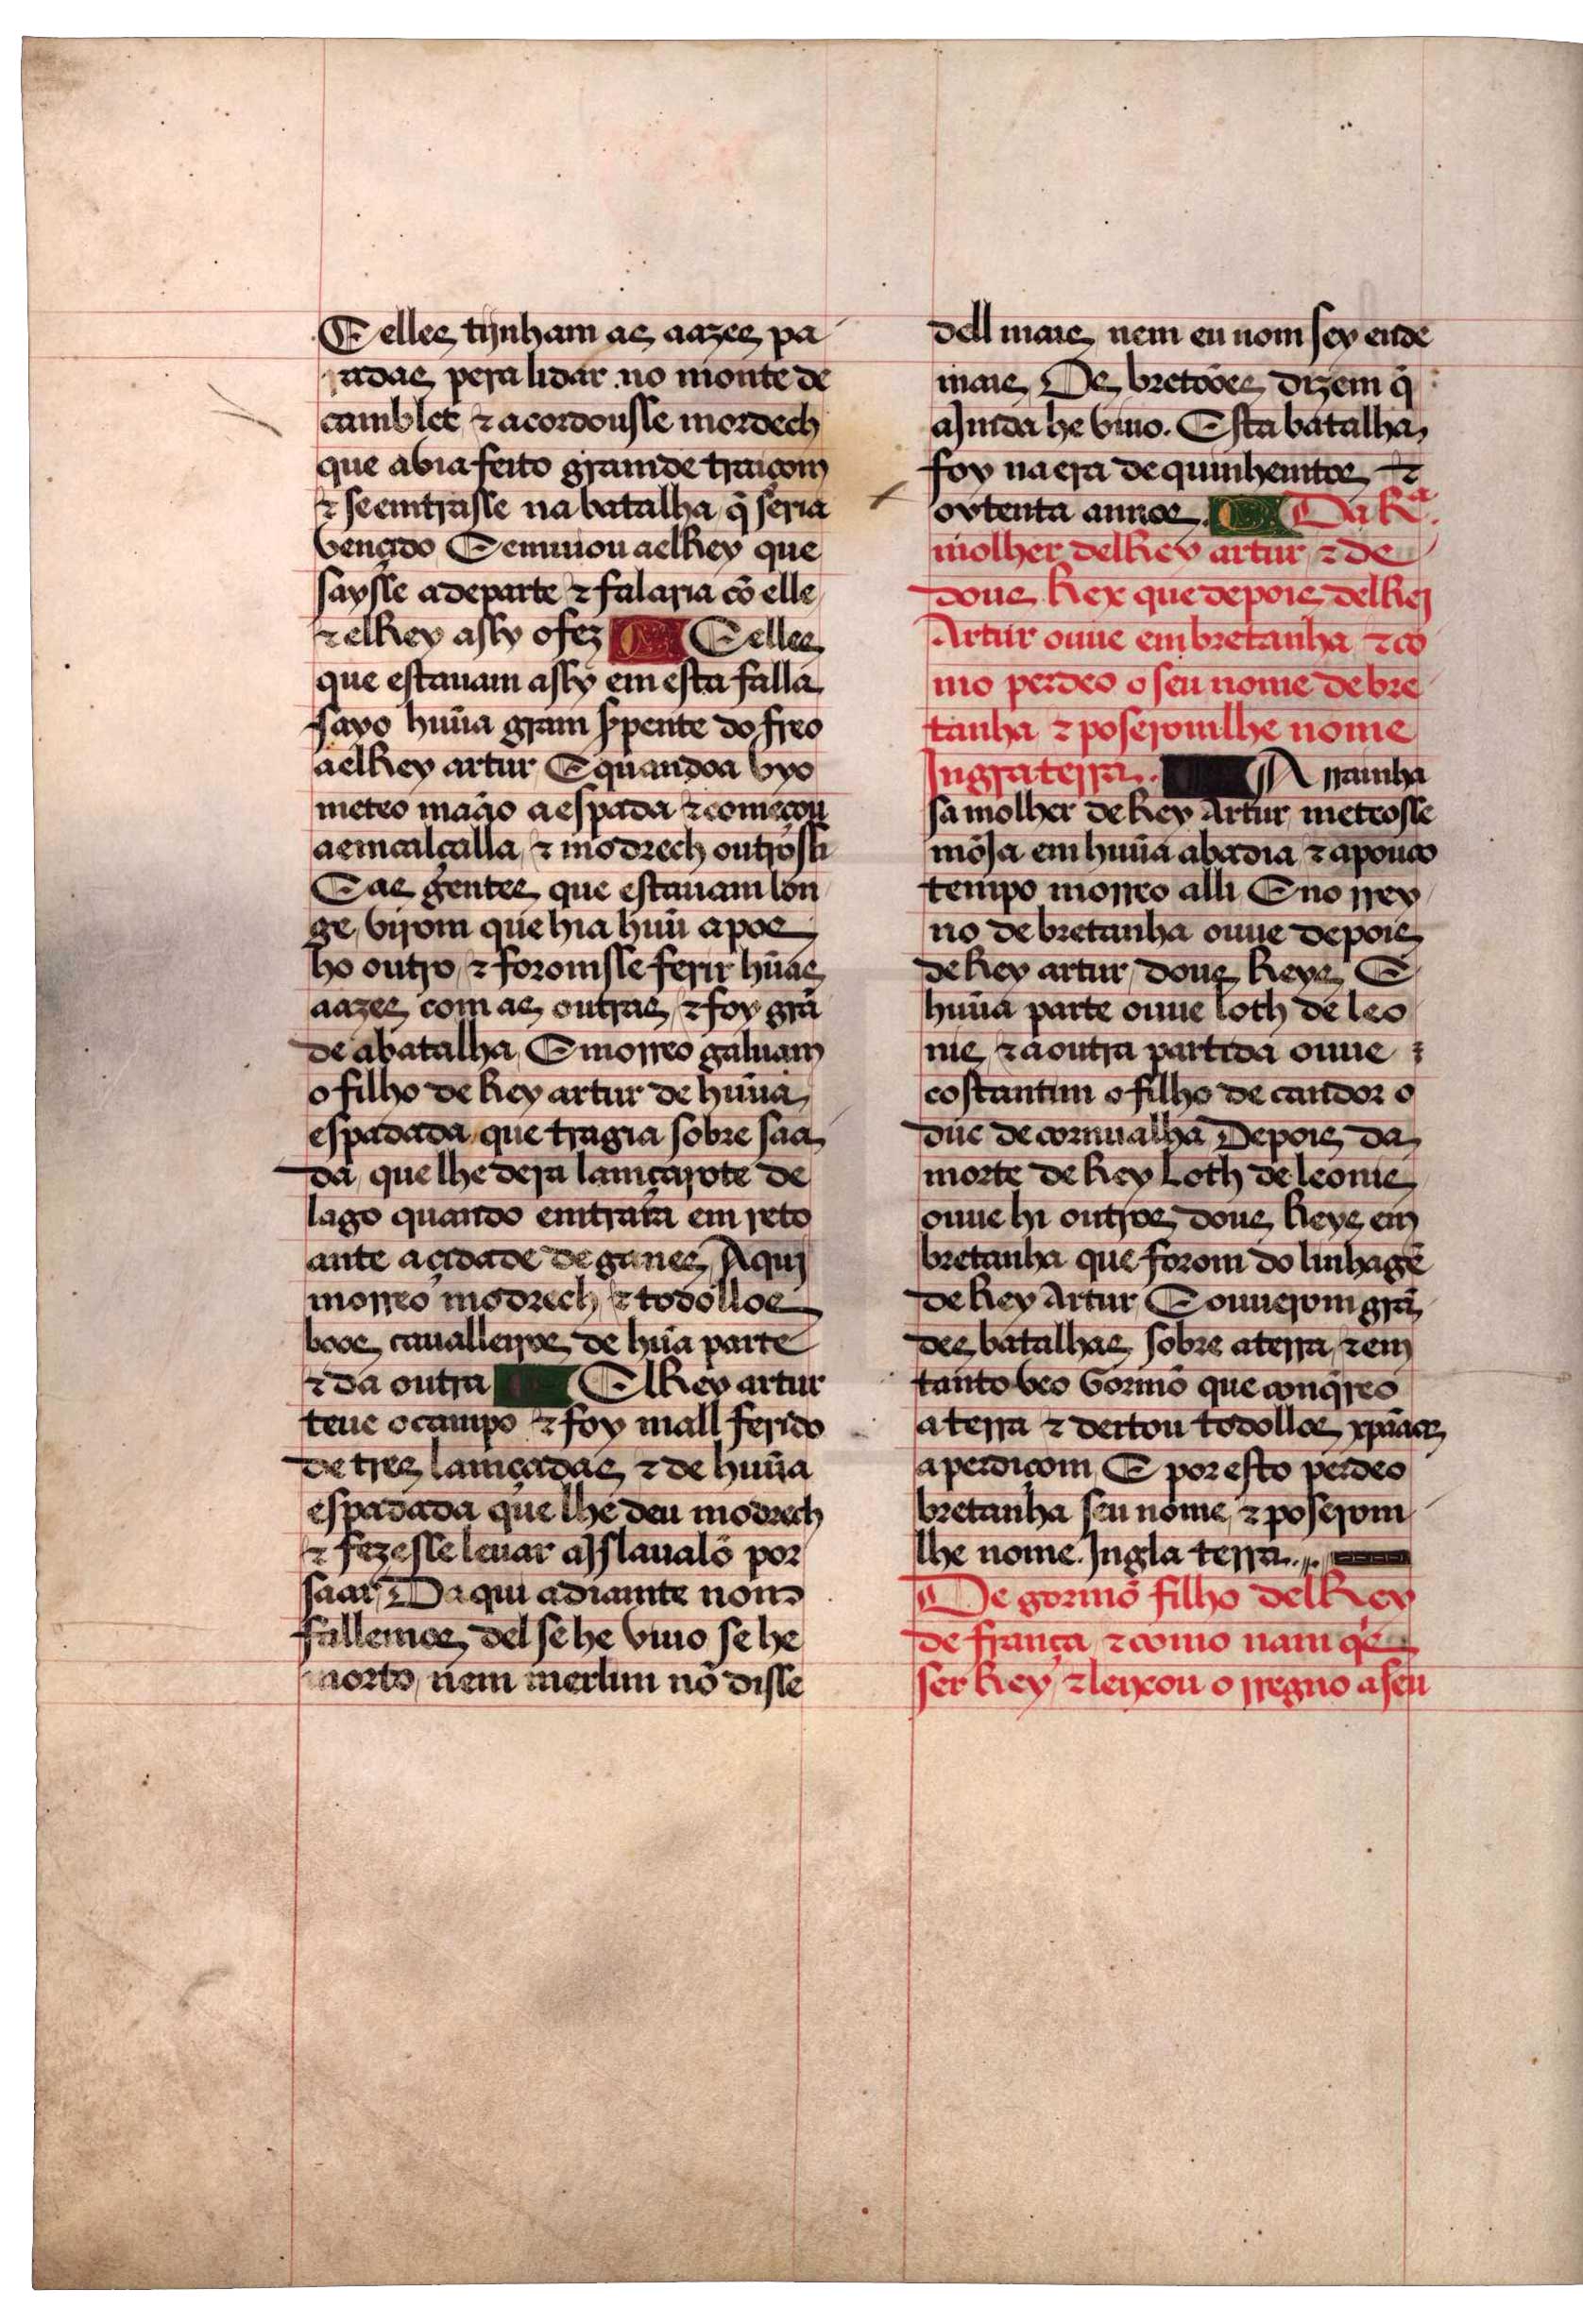 E elles tijnham as aazes pa
radas pera lidar no monte de
camblet ⁊ acordousse mordech
que abia feito gramde traiçom
⁊ se emtrasse na batalha q̃ seria
vençido E emuiou a elRey que
saysse a departe ⁊ falaria cõ elle
⁊ elRey assy o fez E elles
que estauam assy em esta falla
sayo huũa gram sꝑpente do freo
a elRey artur E quando a vyo
meteo maão a espada ⁊ começou
a emcalçalla ⁊ modrech outrossi
E as gentes que estauam lon
ge virom que hia huũ apos
ho outro ⁊ foromsse ferir hũas
aazes com as outras ⁊ foy grã
de a batalha E morreo galuam
o filho de Rey artur de huũa
espadada que tragia sobre saa
da que lhe dera lamçarote de
lago quando emtrara em reto
ante a çidade de ganes Aqui
morreo modrech ⁊ todollos
boos caualleiros de hũa parte
⁊ da outra ElRey artur
teue o campo ⁊ foy mall ferido
de tres lamçadas ⁊ de huũa
espadada que lhe deu modrech
⁊ fezesse leuar a jslaualõ por
saar Daqui adiamte nom
fallemos del se he viuo se he
morto nem merlim nõ disse
dell mais nem eu nom sey ende
mais Os bretoões dizem q̃
ajmda he viuo. Esta batalha
foy na era de quinhemtos ⁊
oytenta annos. Da Rª.
molher delRey artur ⁊ de
dous Rex que depois delRej
Artur ouue em bretanha ⁊ co
mo perdeo o seu nome de bre
tanha ⁊ poserom lhe nome
Ingraterra. A rrainha
sa molher de Rey Artur meteosse
mõja em huũa abadia ⁊ a pouco
tempo morreo alli E no rrey
no de bretanha ouue depois
de Rey artur dous Reys E
huũa parte ouue loth de leo
nis ⁊ a outra partida ouue
costantim o filho de candor o
duc de cornualha Depois da
morte de Rey Loth de leonis
ouue hi outros dous Reys em
bretanha que forom do linhagẽ
de Rey Artur E ouuerom grã
des batalhas sobre a terra ⁊ em
tanto veo Gormõ que conq̃reo
a terra ⁊ deitou todollos xp̃aãos
a perdiçom E por esto perdeo
bretanha seu nome ⁊ poserom
lhe nome. Jngla terra.
De gormõ filho delRey
de frança ⁊ como nam q̃s
ser Rey ⁊ leixou o rregno a seu